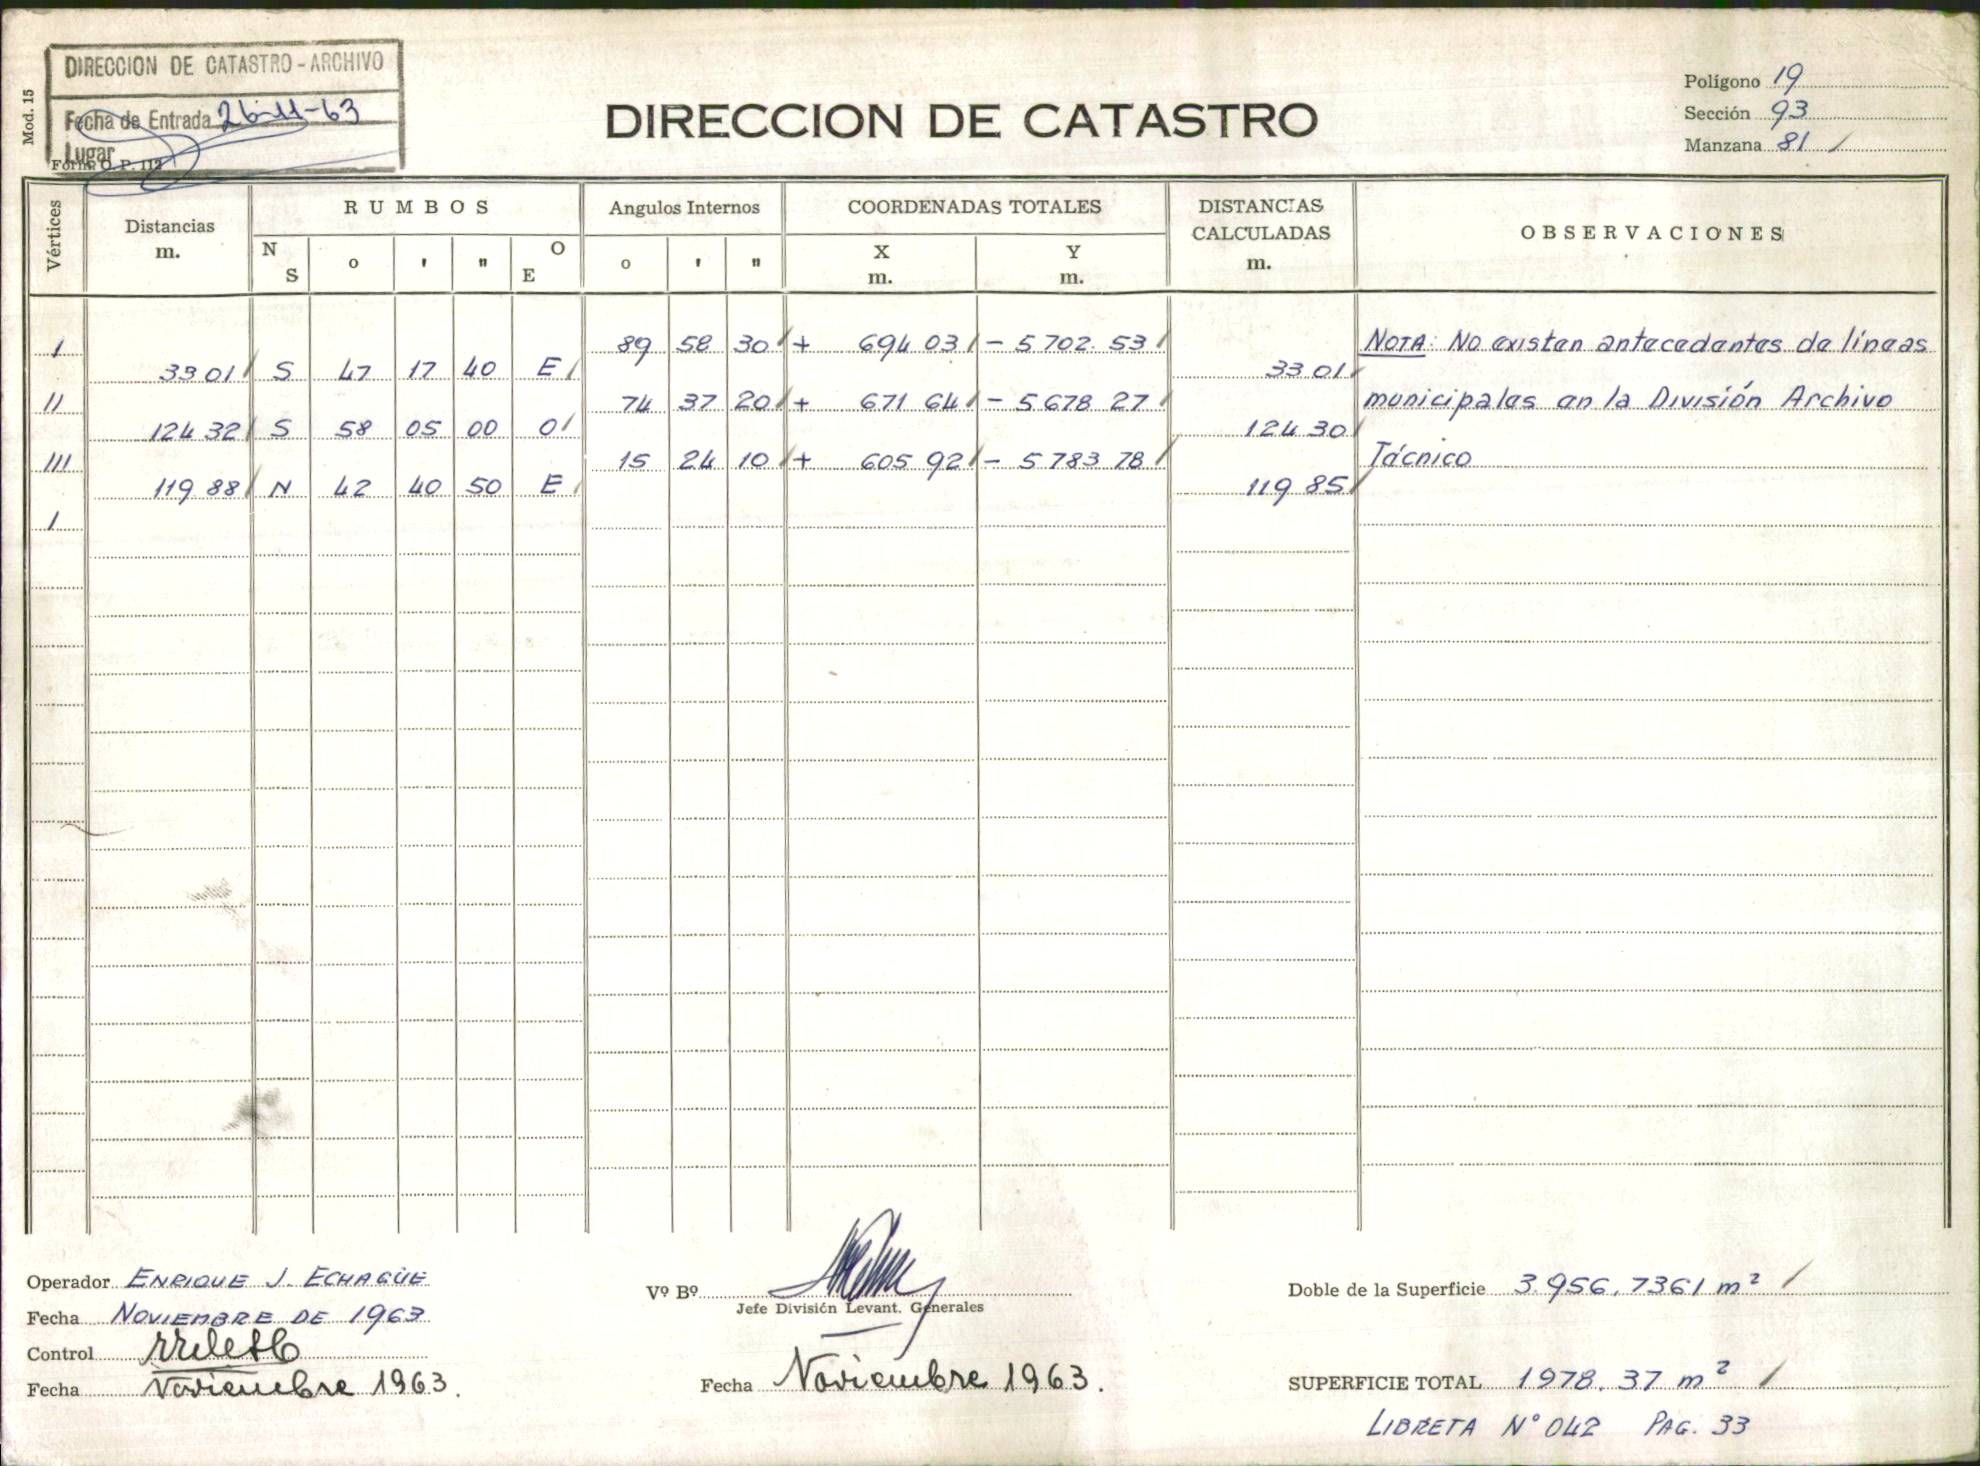 Mod. 15
DIRECCION DE CATASTRO - ARCHIVO
Fecha de Entrada 26-11-63
Lugar
Form. O. P. 112
DIRECCION DE CATASTRO
Polígono 19
Sección 93
Manzana 81
Vértices Distancias m. RUMBOS Angulos Internos COORDENADAS TOTALES DISTANCIAS CALCULADAS m. OBSERVACIONES
N S o ' " O E o ' " X m. Y m.
I 89 58 30 + 694 03 - 5702. 53 NOTA: No existen antecedentes de líneas
33 01 S 47 17 40 E 33 01
II 74 37 20 + 671 64 - 5678 27 municipales en la División Archivo
124 32 S 58 05 00 O 124 30
III 15 24 10 + 605 92 - 5783 78 Técnico
119 88 N 42 40 50 E 119 85
I
Operador ENRIQUE J. ECHAGÜE
Fecha NOVIEMBRE DE 1963
Control
Fecha Noviembre 1963.
Vº Bº
Jefe División Levant. Generales
Fecha Noviembre 1963.
Doble de la Superficie 3.956,7361 m²
SUPERFICIE TOTAL 1978,37 m²
LIBRETA N° 042 PAG. 33